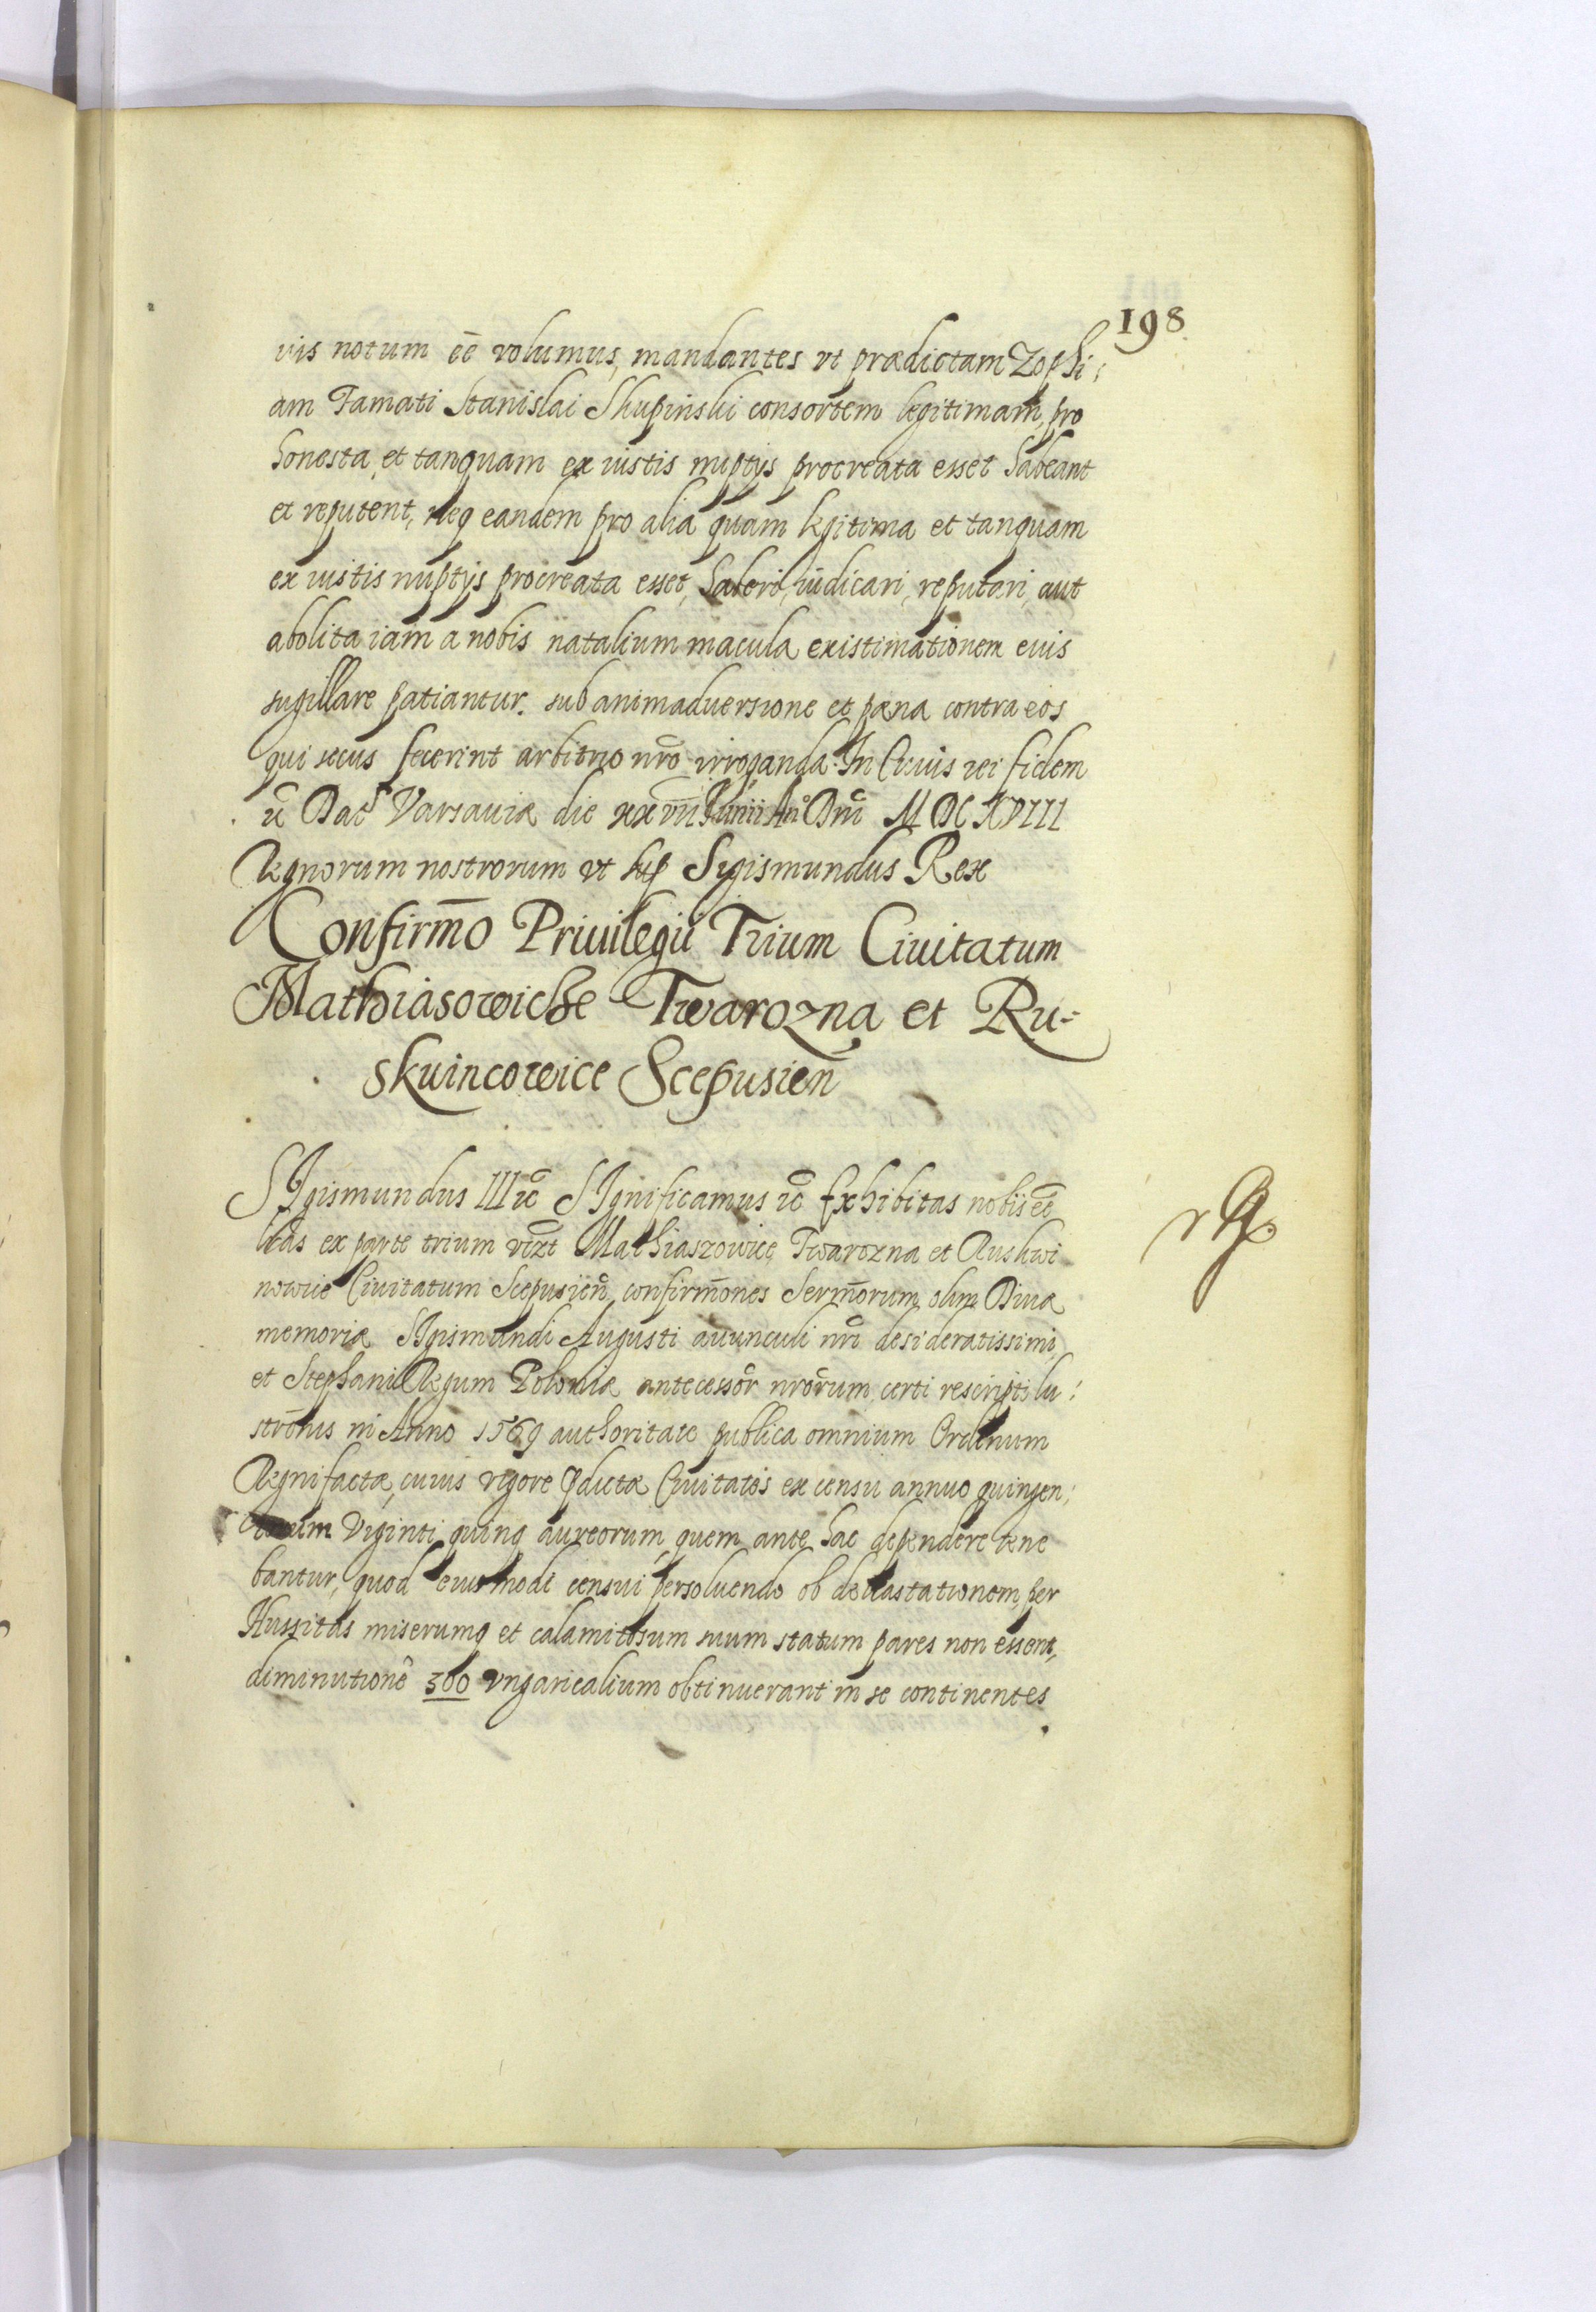 198
uis notum eē volumus, mandantes vt prædictam Zophi:
am Famati Stanislai Skupinski consortem legitimam, pro
honesta, et tanquam ex iustis nuptijs procreata esset habeant
et reputent, neq eandem pro alia quam legitima et tanquam
ex iustis nuptijs procreata esset, haberi, iudicari, reputari, aut
abolita iam a nobis natalium macula existimationem eius
sugillare patiantur. sub animaduersione et pæna contra eos
qui secus fecerint arbitrio nrō irroganda. In Cuius rei fidem
ic̄ Dat Varsauiæ die xxvii Junii Anº Dnī M DC XVIII
Regnorum nostrorum vt sup Sigismundus Rex
Confirmō Priuilegii Trium Ciuitatum
Mathiasowiche Twarozna et Ru-
skuincowice Scepusien̄
SIgismundus III ic̄ SIgnificamus ic̄ Exhibitas nobis eē
lrās ex parte trium vizt Mathiaszowice Twarozna et Ruskwi
nowice Ciuitatum Scepusien̄, confirmōnes Sermōrum olim Diuæ
memoriæ SIgismundi Augusti auunculi nrī desideratissimi,
et Stephani Regum Poloniæ antecessor̄ nrōrum, certi rescripti lu:
strōnis in Anno 1569 authoritate publica omnium Ordinum
Regni factæ, cuius vigore pdictæ Ciuitates ex censu annuo quingen:
torum Viginti quinq aureorum, quem ante hac dependere tene
bantur, quod eiusmodi censui persoluendo ob deuastationem, per
Hussitas miserumq et calamitosum suum statum pares non essent,
diminutionē 300 vngaricalium obtinuerant in se continentes